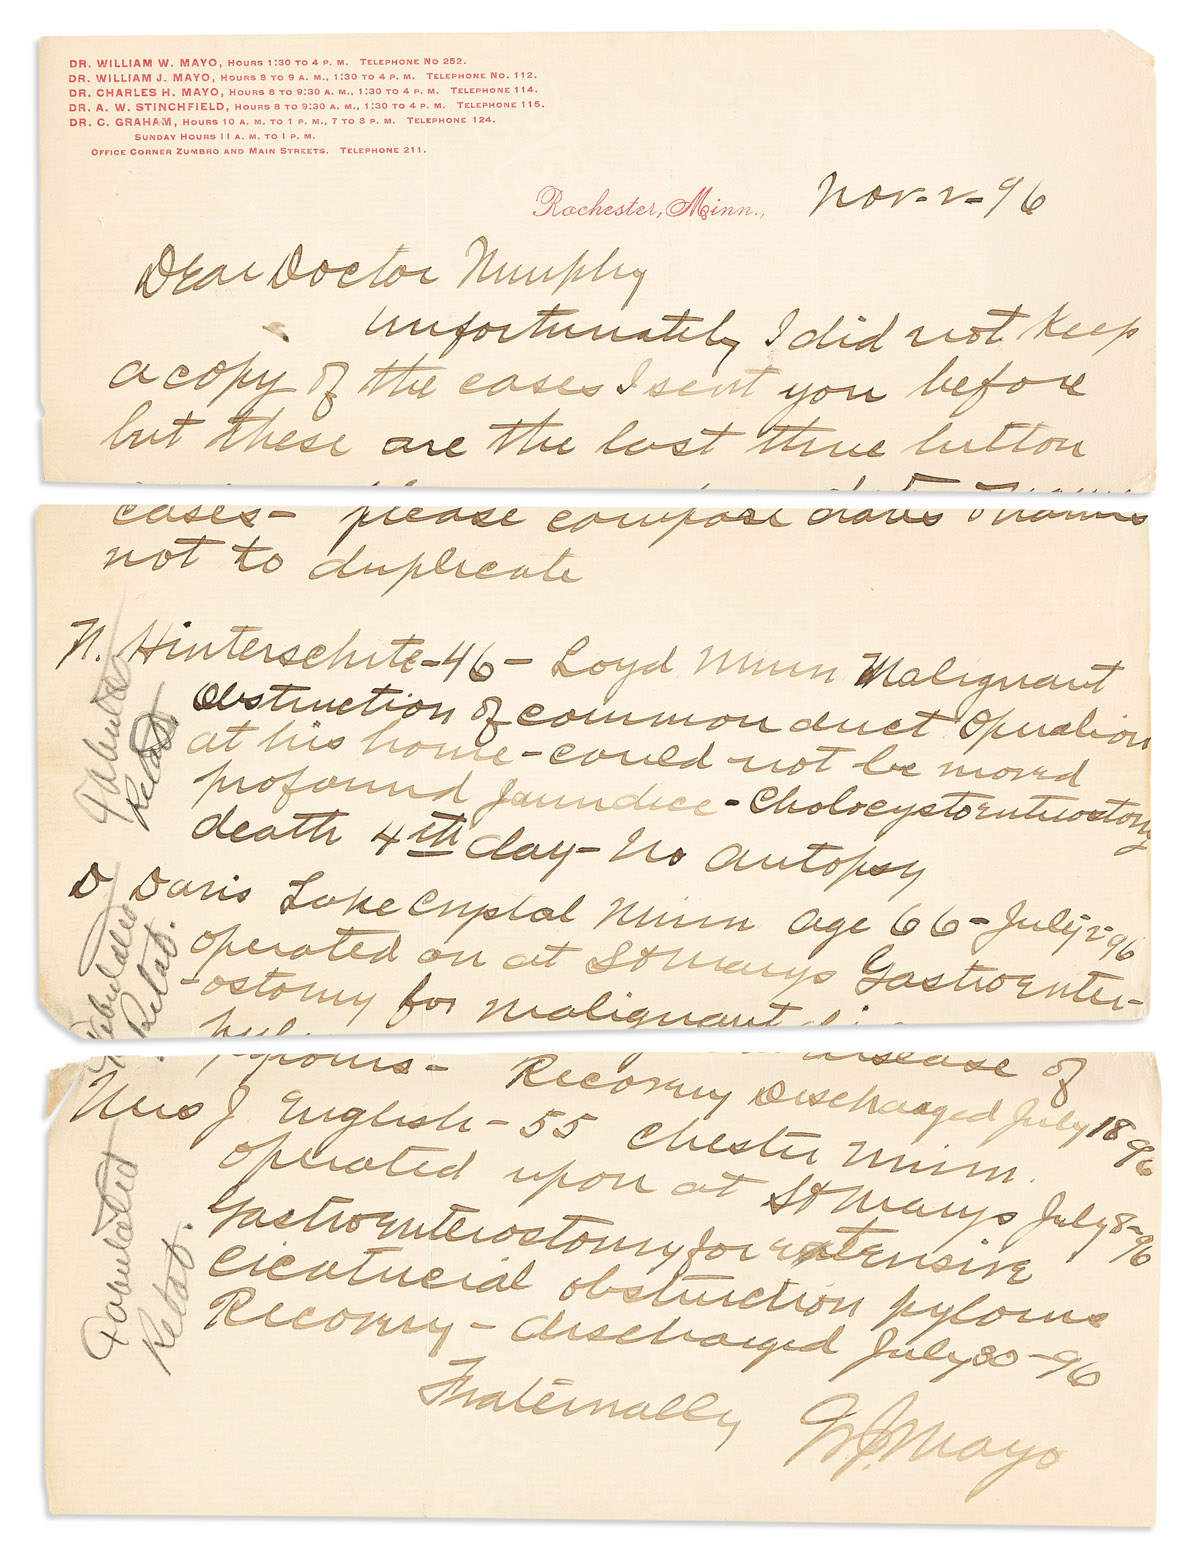 DR. WILLIAM W. MAYO, HOURS 1:30 TO 4 P. M. TELEPHONE NO 252.
DR. WILLIAM J. MAYO, HOURS 8 TO 9 A. M., 1:30 TO 4 P. M. TELEPHONE NO. 112.
DR. CHARLES H. MAYO, HOURS 8 TO 9:30 A. M., 1:30 TO 4 P. M. TELEPHONE 114.
DR. A. W. STINCHFIELD, HOURS 8 TO 9:30 A. M., 1:30 TO 4 P. M. TELEPHONE 115.
DR. C. GRAHAM, HOURS 10 A. M. TO 1 P. M., 7 TO 8 P. M. TELEPHONE 124.
SUNDAY HOURS 11 A. M. TO 1 P. M.
OFFICE CORNER ZUMBRO AND MAIN STREETS. TELEPHONE 211.
Rochester, Minn., Nov-2-96
Dear Doctor Murphy
Unfortunately I did not keep
a copy of the cases I sent you before
but these are the last three button
cases- please compare dates & names
not to duplicate
N. Hinterschite-46- Loyd Minn Malignant
Obstruction of common duct Operation
at his home-could not be moved
profound Jaundice-Cholocystoenterostomy
death 4th day- No autopsy
D Davis Lake Crystal Minn age 66- July 2-96
operated on at St Marys Gastroenter-
-ostomy for malignant disease of
pylorus- Recovery Discharged July 18 96
Mrs J English-55 Chester Minn.
operated upon at St Marys July 8-96
Gastroenterostomy for extensive
cicatricial obstruction pylorus
Recovery-discharged July 30-96
Fraternally W.J. Mayo
Tabulated
Relat.
Tabulated
Relat.
Tabulated
Relat.